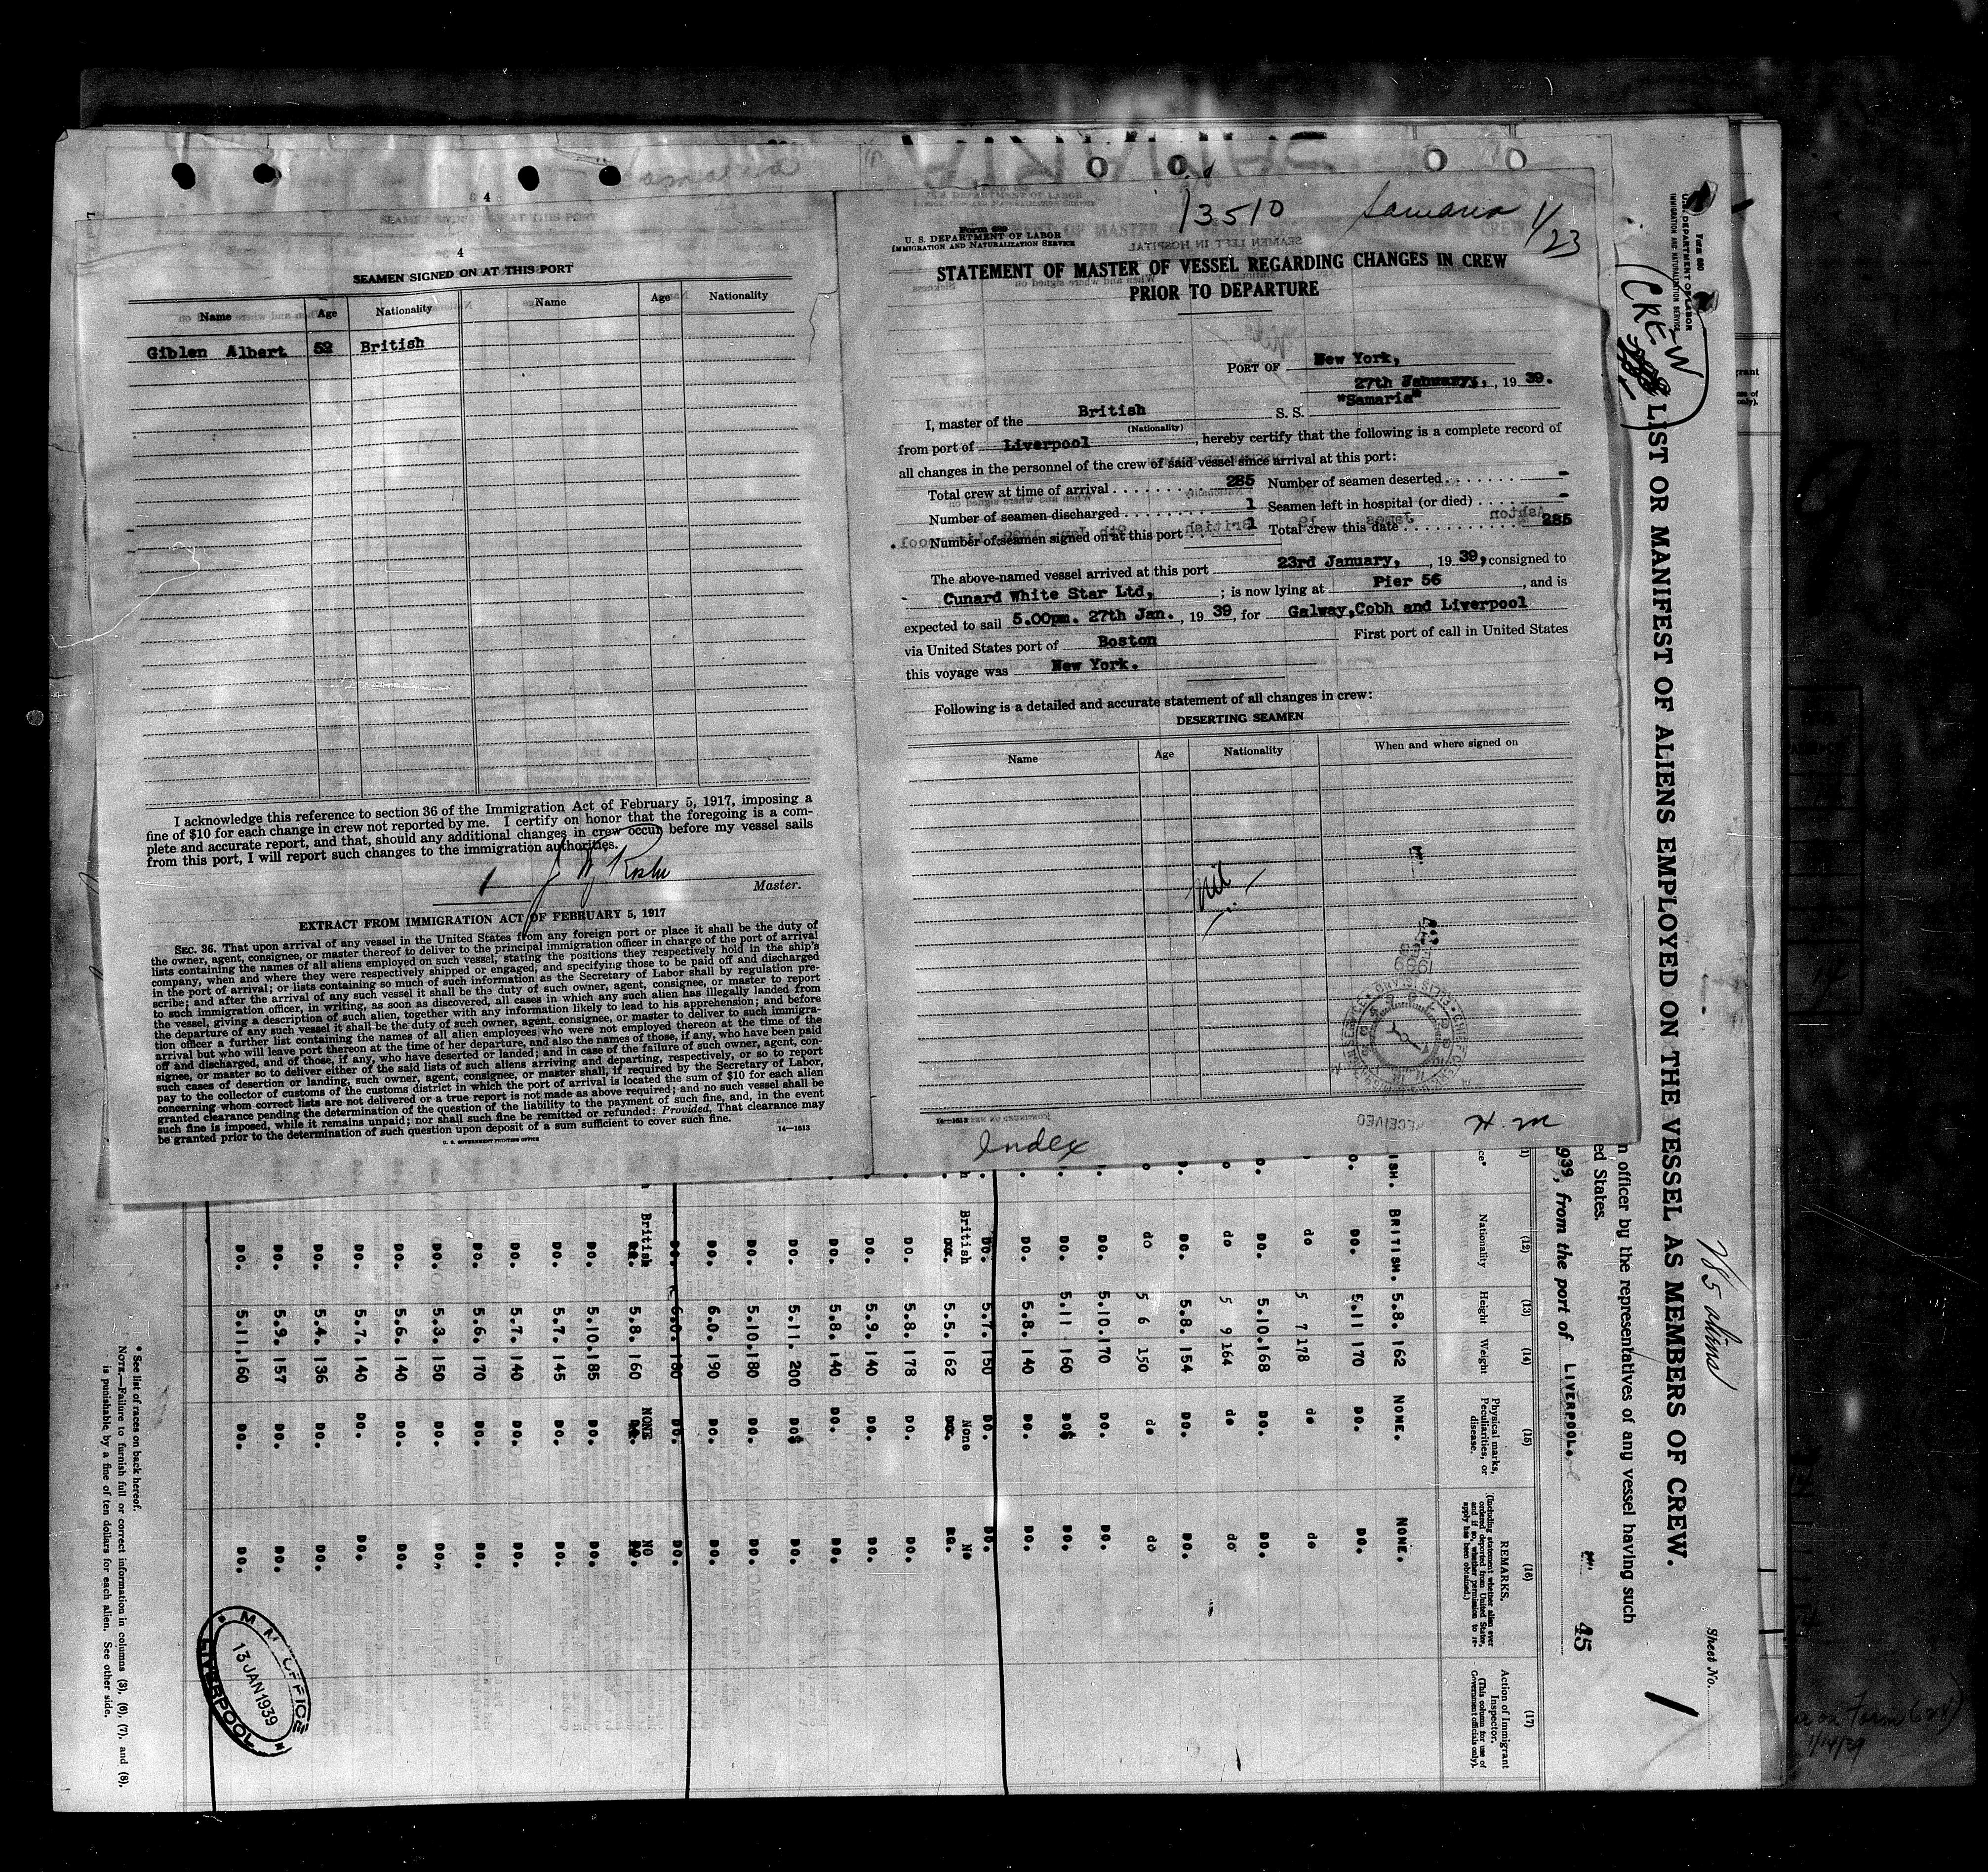 4
SEAMEN SIGNED ON AT THIS PORT
Name Age Nationality Name Age Nationality
Giblen Albert 52 British
I acknowledge this reference to section 36 of the Immigration Act of February 5, 1917, imposing a
fine of $10 for each change in crew not reported by me. I certify on honor that the foregoing is a com-
plete and accurate report, and that, should any additional changes in crew occur before my vessel sails
from this port, I will report such changes to the immigration authorities.
Master.
EXTRACT FROM IMMIGRATION ACT OF FEBRUARY 5, 1917
SEC. 36. That upon arrival of any vessel in the United States from any foreign port or place it shall be the duty of
the owner, agent, consignee, or master thereof to deliver to the principal immigration officer in charge of the port of arrival
lists containing the names of all aliens employed on such vessel, stating the positions they respectively hold in the ship's
company, when and where they were respectively shipped or engaged, and specifying those to be paid off and discharged
in the port of arrival; or lists containing so much of such information as the Secretary of Labor shall by regulation pre-
scribe; and after the arrival of any such vessel it shall be the duty of such owner, agent, consignee, or master to report
to such immigration officer, in writing, as soon as discovered, all cases in which any such alien has illegally landed from
the vessel, giving a description of such alien, together with any information likely to lead to his apprehension; and before
the departure of any such vessel it shall be the duty of such owner, agent, consignee, or master to deliver to such immigra-
tion officer a further list containing the names of all alien employees who were not employed thereon at the time of the
arrival but who will leave port thereon at the time of her departure, and also the names of those, if any, who have been paid
off and discharged, and of those, if any, who have deserted or landed; and in case of the failure of such owner, agent, con-
signee, or master so to deliver either of the said lists of such aliens arriving and departing, respectively, or so to report
such cases of desertion or landing, such owner, agent, consignee, or master shall, if required by the Secretary of Labor,
pay to the collector of customs of the customs district in which the port of arrival is located the sum of $10 for each alien
concerning whom correct lists are not delivered or a true report is not made as above required; and no such vessel shall be
granted clearance pending the determination of the question of the liability to the payment of such fine, and, in the event
such fine is imposed, while it remains unpaid; nor shall such fine be remitted or refunded: Provided, That clearance may
be granted prior to the determination of such question upon deposit of a sum sufficient to cover such fine.
U. S. GOVERNMENT PRINTING OFFICE 14—1613
13510 Samaria 1/23
Form 689
U. S. DEPARTMENT OF LABOR
IMMIGRATION AND NATURALIZATION SERVICE
STATEMENT OF MASTER OF VESSEL REGARDING CHANGES IN CREW
PRIOR TO DEPARTURE
PORT OF New York,
27th January, , 19 39.
I, master of the British S. S. "Samaria"
(Nationality)
from port of Liverpool , hereby certify that the following is a complete record of
all changes in the personnel of the crew of said vessel since arrival at this port:
Total crew at time of arrival 285 Number of seamen deserted -
Number of seamen discharged 1 Seamen left in hospital (or died) -
Number of seamen signed on at this port 1 Total crew this date 285
The above-named vessel arrived at this port 23rd January, , 19 39, consigned to
Cunard White Star Ltd, ; is now lying at Pier 56 , and is
expected to sail 5.00pm. 27th Jan. , 19 39, for Galway,Cobh and Liverpool
via United States port of Boston First port of call in United States
this voyage was New York.
Following is a detailed and accurate statement of all changes in crew:
DESERTING SEAMEN
Name Age Nationality When and where signed on
nil
Index
H. M
Form 680
U. S. DEPARTMENT OF LABOR
IMMIGRATION AND NATURALIZATION SERVICE
(CREW)
LIST OR MANIFEST OF ALIENS EMPLOYED ON THE VESSEL AS MEMBERS OF CREW.
285 aliens
Sheet No.
officer by the representatives of any vessel having such
ed States.
939, from the port of LIVERPOOL,
45
(12) (13) (14) (15) (16) (17)
Nationality Height Weight Physical marks, Peculiarities, or disease. REMARKS. (Including statement whether alien ever ordered deported from United States, and if so, whether permission to re-apply has been obtained.) Action of Immigrant Inspector. (This column for use of Government officials only).
BRITISH. 5.8. 162 NONE. NONE.
DO. 5.11 170 DO. DO.
do 5 7 178 do do
DO. 5.10. 168 DO. DO.
do 5 9 164 do do
DO. 5.8. 154 DO. DO.
do 5 6 150 do do
DO. 5.10. 170 DO. DO.
DO. 5.11 160 DO. DO.
DO. 5.8. 140 DO. DO.
DO. 5.7. 150 DO. DO.
British 5.5. 162 None No
DO. 5.8. 178 DO. DO.
DO. 5.9. 140 DO. DO.
DO. 5.8. 140 DO. DO.
DO. 5.11. 200 DO. DO.
DO. 5.10. 180 DO. DO.
DO. 6.0. 190 DO. DO.
DO. 6.0. 180 DO. DO.
British 5.8. 160 NONE NO
DO. 5.10. 185 DO. DO.
DO. 5.7. 145 DO. DO.
DO. 5.7. 140 DO. DO.
DO. 5.6. 170 DO. DO.
DO. 5.3. 150 DO. DO.
DO. 5.6. 140 DO. DO.
DO. 5.7. 140 DO. DO.
DO. 5.4. 136 DO. DO.
DO. 5.9. 157 DO. DO.
DO. 5.11. 160 DO. DO.
* See list of races on back hereof.
NOTE.—Failure to furnish full or correct information in columns (3), (6), (7), and (8),
is punishable by a fine of ten dollars for each alien. See other side.
M M OFFICE
13 JAN 1939
LIVERPOOL
on Form 628)
1/14/39